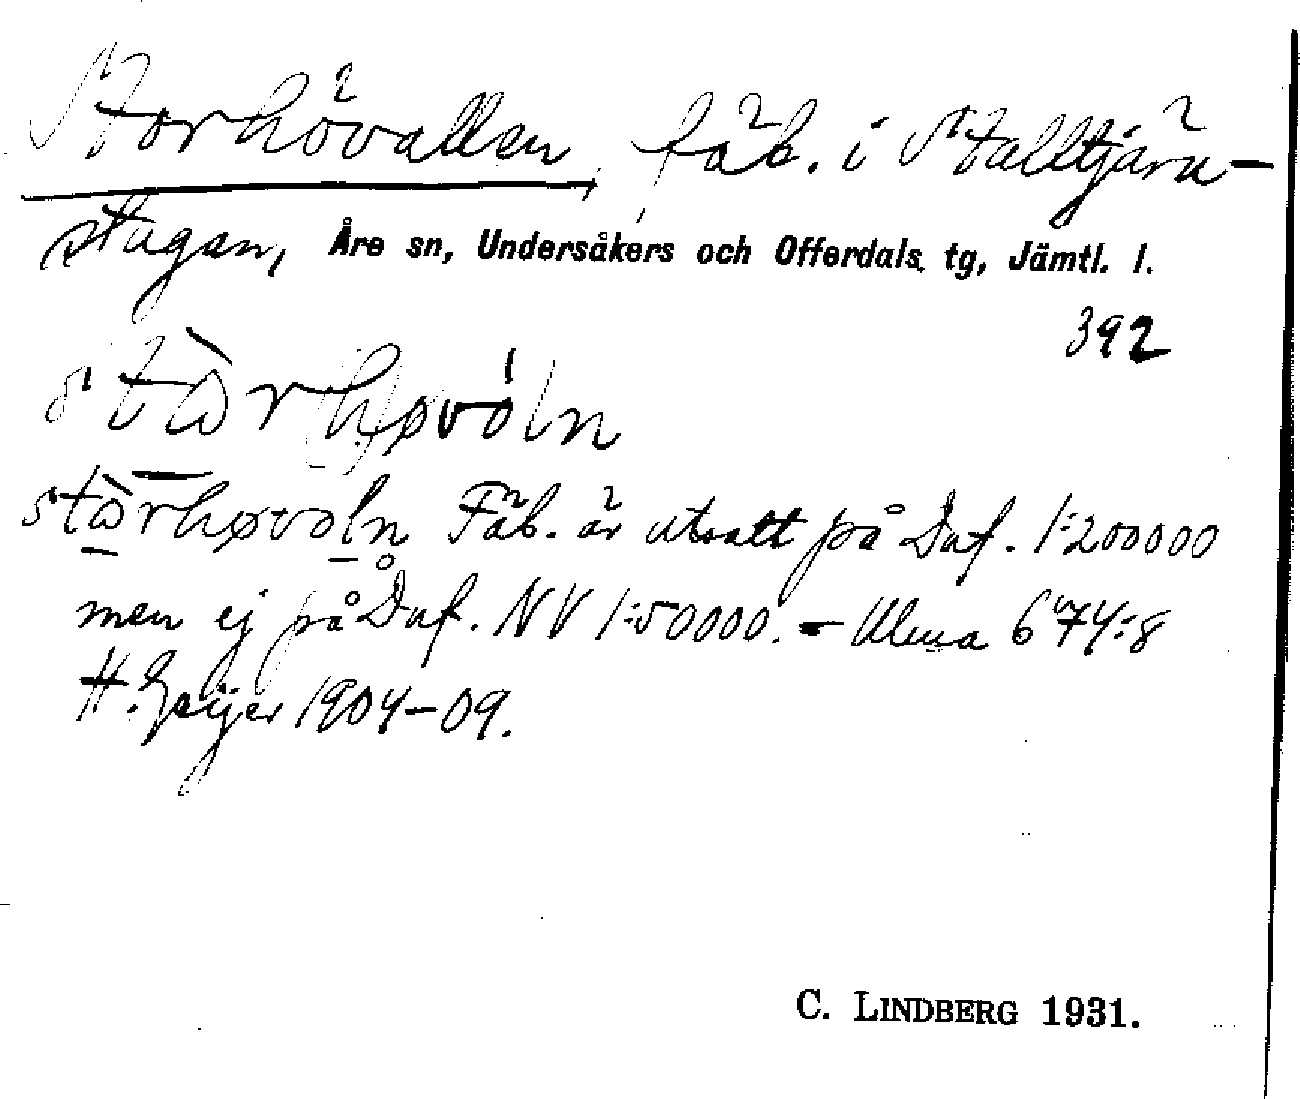 Storhövallen, fäb. i Stalltjärn-
stugan, Åre sn, Undersåkers och Offerdals tg, Jämtl. l.
392
stɷ̀rhøvóln
stɷ̀rhøvoln Fäb. är utsatt på Duf. 1:200000
men ej på Duf. NV 1:50000. – Ulma 674:8
H. Geijer 1904–09.
C. LINDBERG 1931.